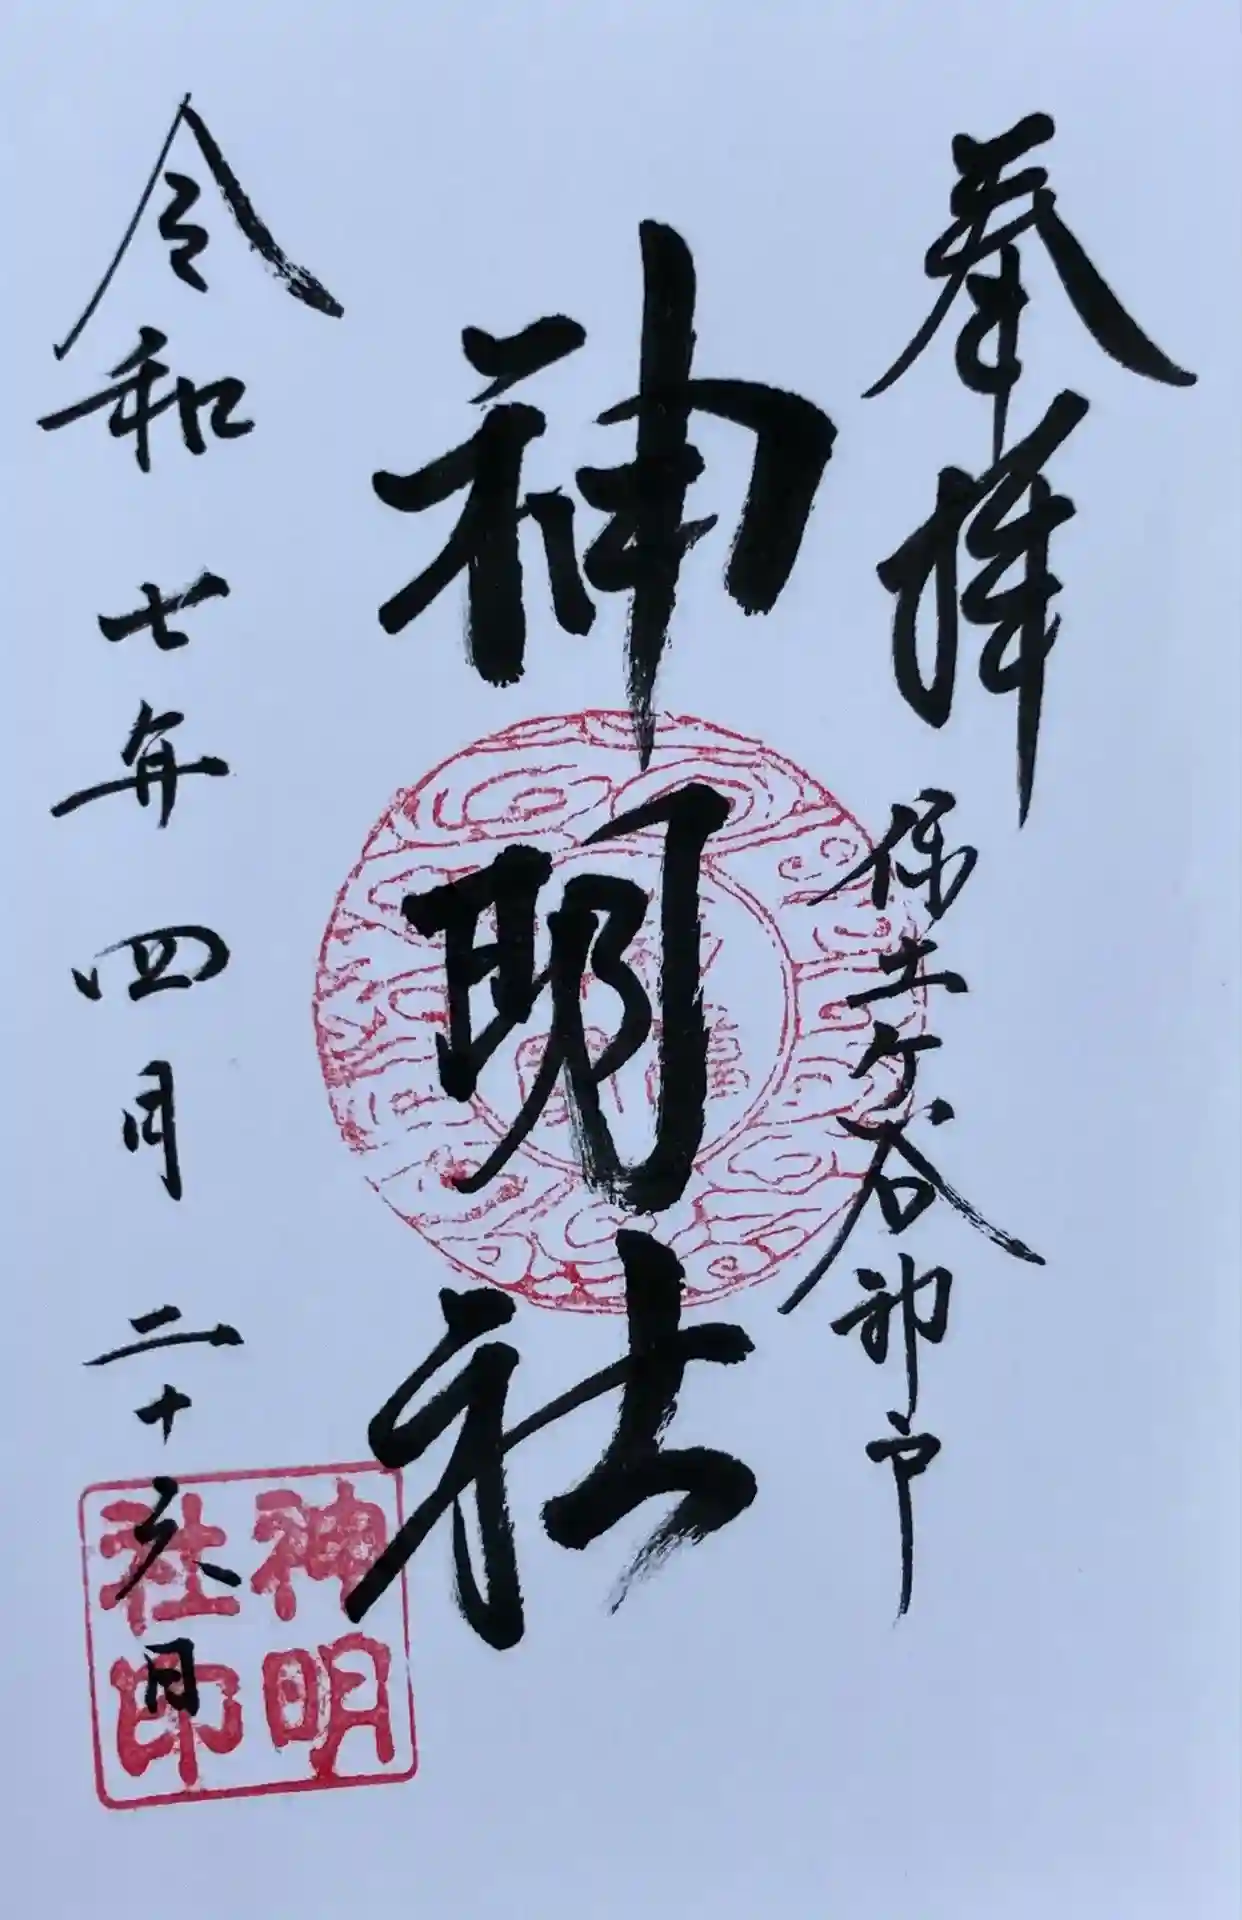 奉拝
保土ケ谷神戸
神明社
令和七年四月二十六日
神明社印